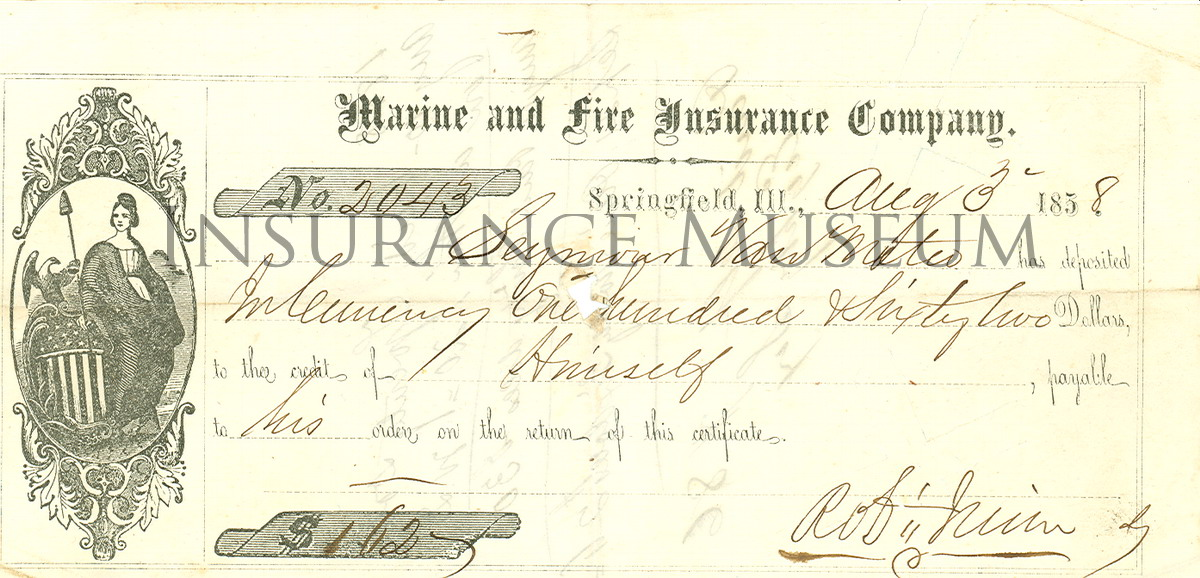 Marine and Fire Insurance Company.
No. 2043
Springfield, Ill., Aug 3 1858
INSURANCE MUSEUM
Seymour Van Meter has deposited
In Currency One Hundred & Sixty two Dollars,
to the credit of Himself, payable
to his order on the return of this certificate.
$162